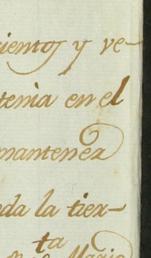 cientos y ve-
tenia en el
mantener
da la tier-
ta